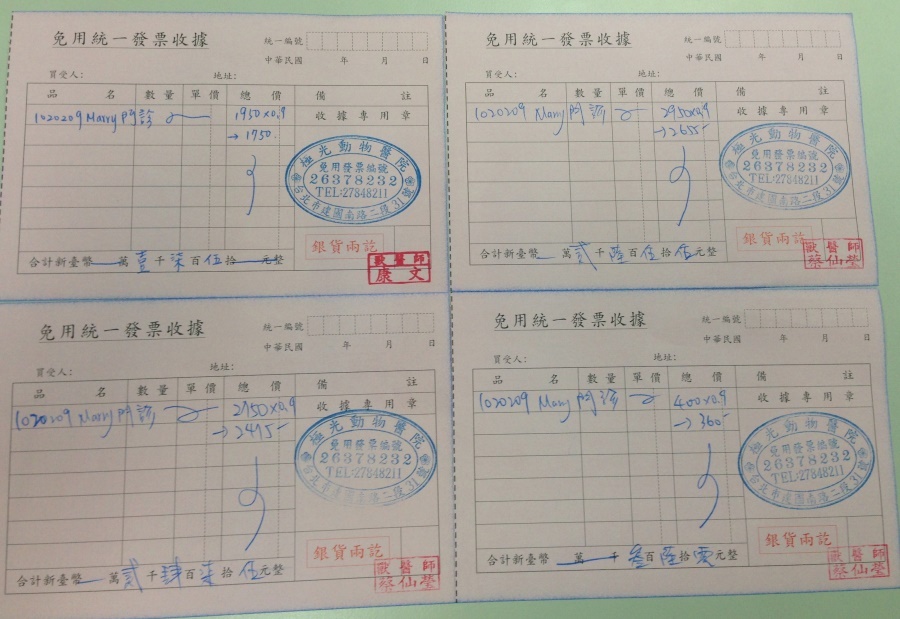 免用統一發票收據
統一編號
中華民國 年 月 日
買受人: 地址:
品 名 數量 單價 總價 備 註
1020209 Marry 門診 1950x0.9 收據專用章
→ 1750
極光動物醫院
免用發票編號
26378232
TEL:27848211
台北市建國南路二段31號
銀貨兩訖
獸醫師
康文
合計新臺幣 萬壹千柒百伍拾 元整
免用統一發票收據
統一編號
中華民國 年 月 日
買受人: 地址:
品 名 數量 單價 總價 備 註
1020209 Marry 門診 2950x0.9 收據專用章
→ 2655
極光動物醫院
免用發票編號
26378232
TEL:27848211
台北市建國南路二段31號
銀貨兩訖
獸醫師
蔡仙瑩
合計新臺幣 萬貳千陸百伍拾伍元整
免用統一發票收據
統一編號
中華民國 年 月 日
買受人: 地址:
品 名 數量 單價 總價 備 註
1020209 Marry 門診 2750x0.9 收據專用章
→ 2475
極光動物醫院
免用發票編號
26378232
TEL:27848211
台北市建國南路二段31號
銀貨兩訖
獸醫師
蔡仙瑩
合計新臺幣 萬貳千肆百柒拾伍元整
免用統一發票收據
統一編號
中華民國 年 月 日
買受人: 地址:
品 名 數量 單價 總價 備 註
1020209 Marry 門診 400x0.9 收據專用章
→ 360
極光動物醫院
免用發票編號
26378232
TEL:27848211
台北市建國南路二段31號
銀貨兩訖
獸醫師
蔡仙瑩
合計新臺幣 萬 千叁百陸拾零元整